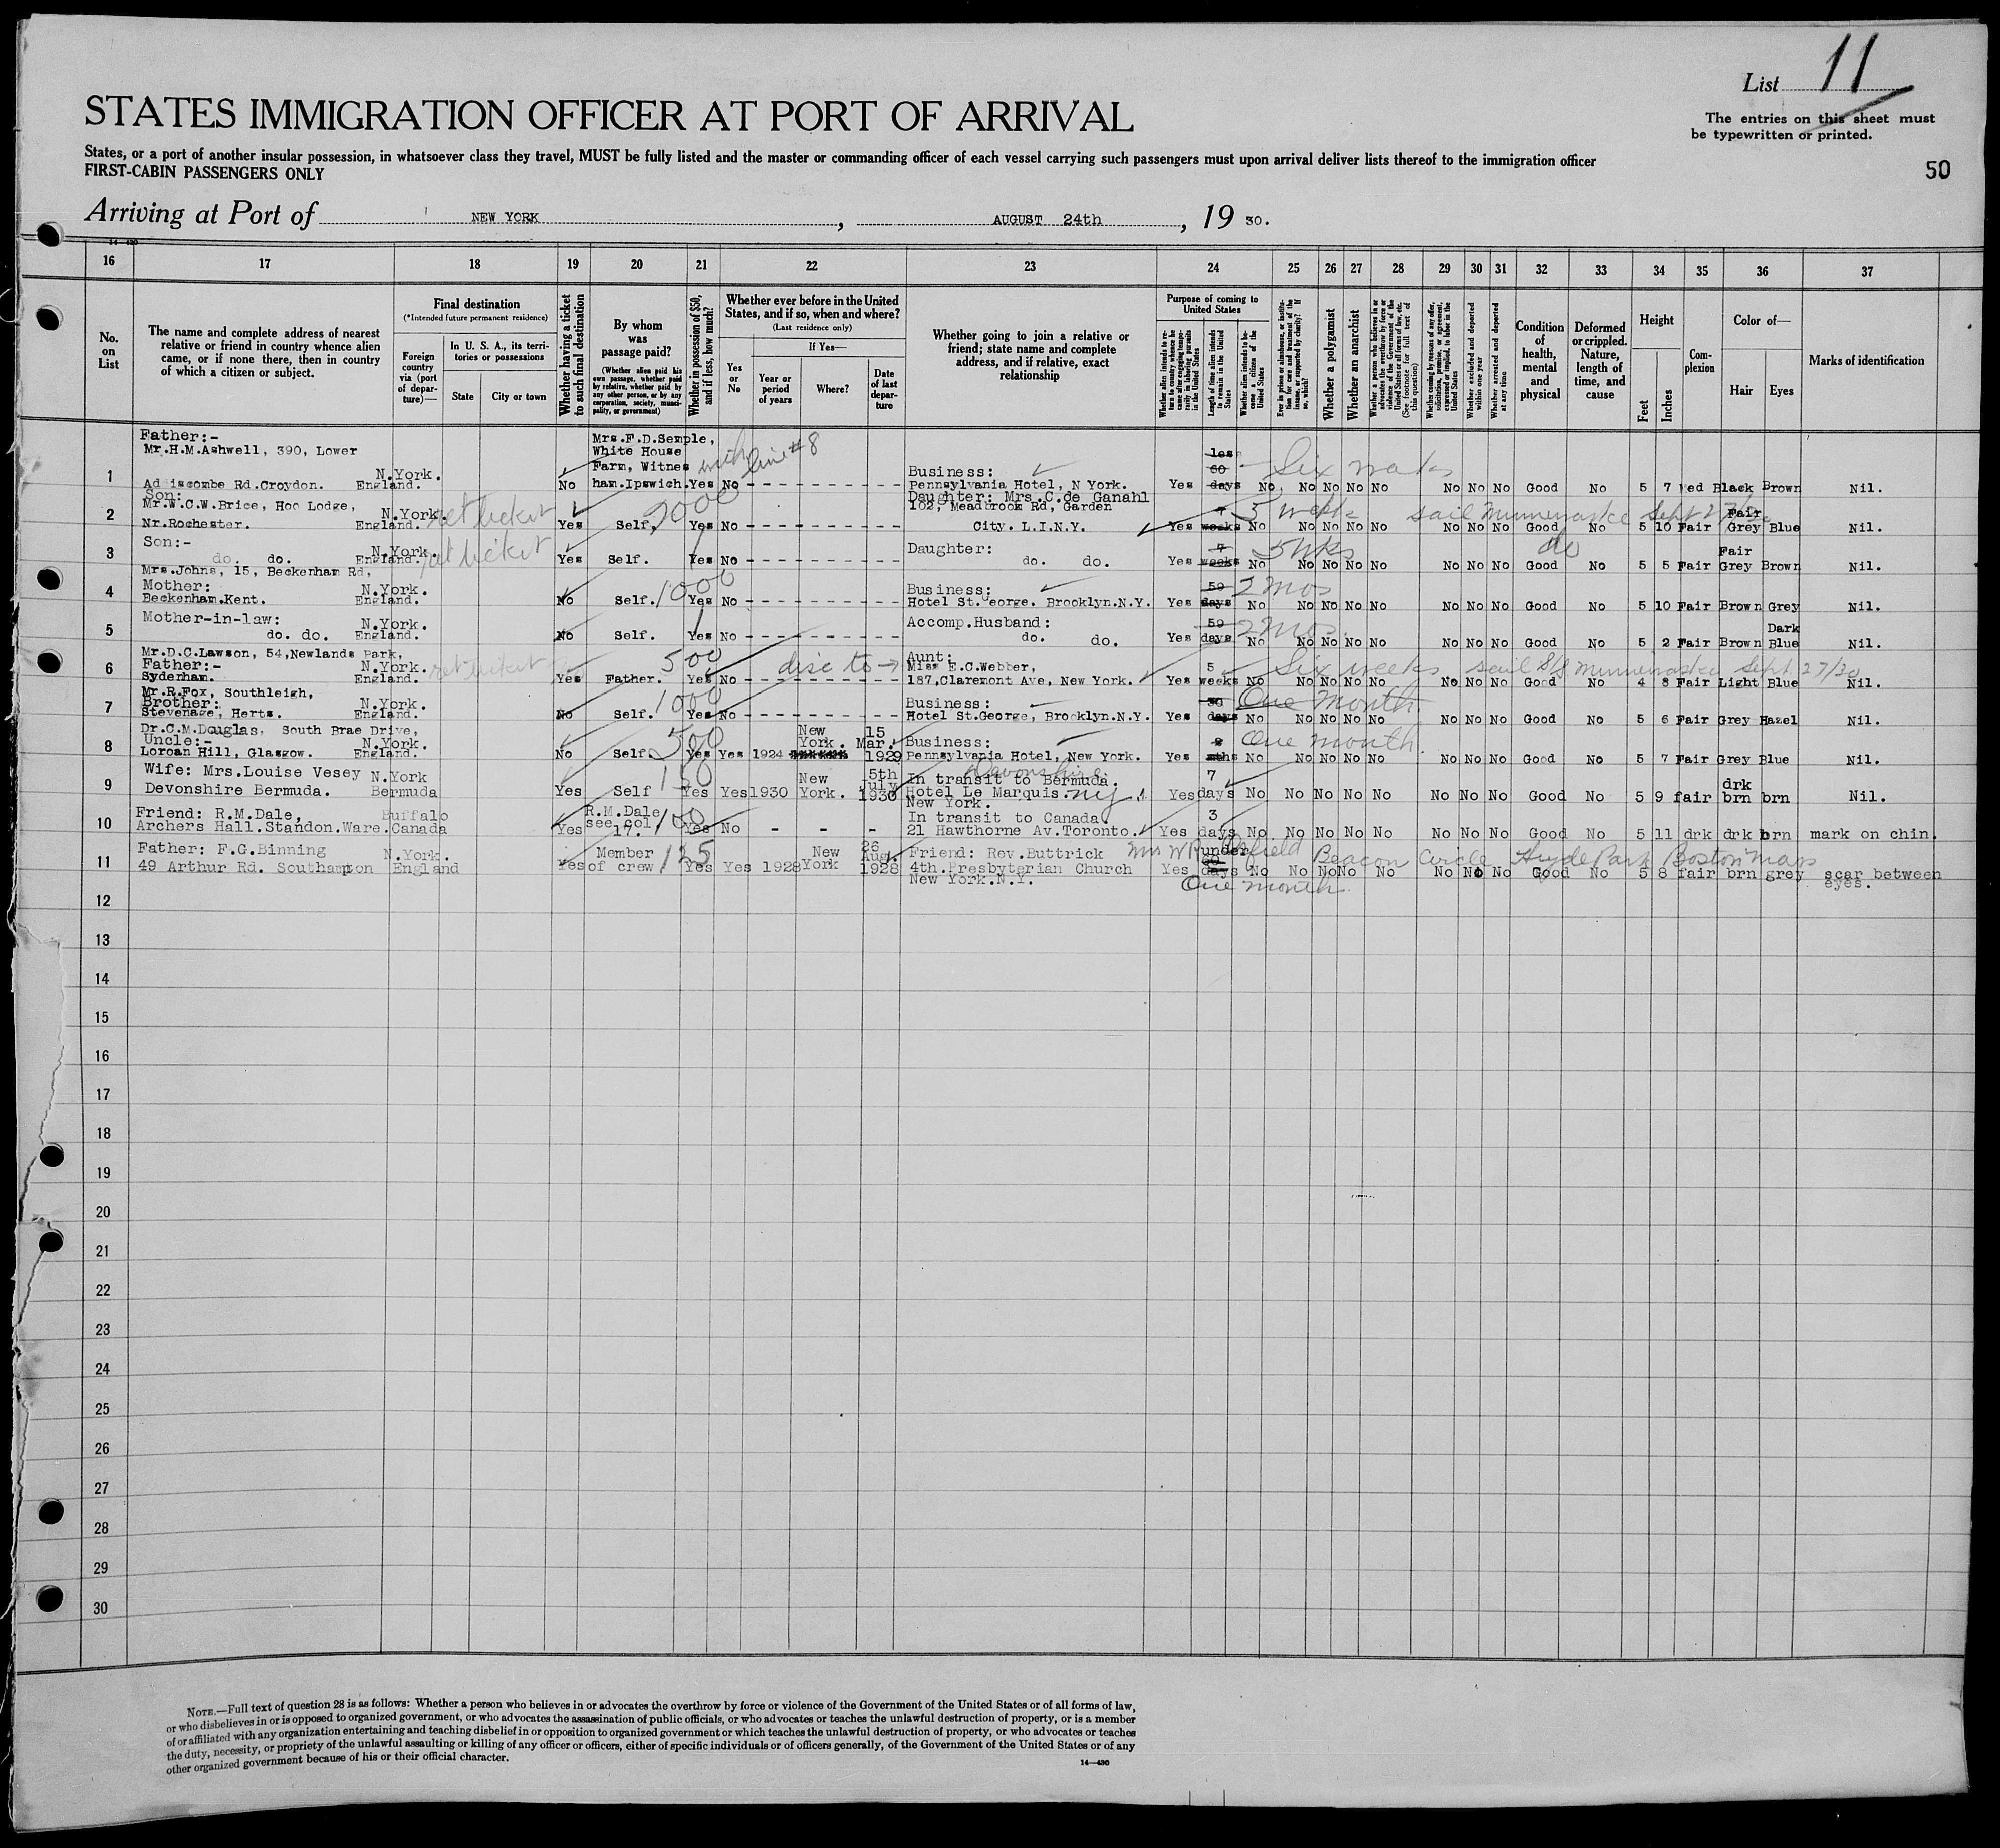 List 11
The entries on this sheet must
be typewritten or printed.
STATES IMMIGRATION OFFICER AT PORT OF ARRIVAL
States, or a port of another insular possession, in whatsoever class they travel, MUST be fully listed and the master or commanding officer of each vessel carrying such passengers must upon arrival deliver lists thereof to the immigration officer
FIRST-CABIN PASSENGERS ONLY
50
Arriving at Port of NEW YORK, AUGUST 24th, 19 30.
16 17 18 19 20 21 22 23 24 25 26 27 28 29 30 31 32 33 34 35 36 37
No. on List
The name and complete address of nearest relative or friend in country whence alien came, or if none there, then in country of which a citizen or subject.
Final destination
(*Intended future permanent residence)
Foreign country via (port of departure)—
In U. S. A., its territories or possessions
State
City or town
Whether having a ticket to such final destination
By whom was passage paid?
(Whether alien paid his own passage, whether paid by relative, whether paid by any other person, or by any corporation, society, municipality, or government)
Whether in possession of $50, and if less, how much?
Whether ever before in the United States, and if so, when and where?
(Last residence only)
Yes or No
If Yes—
Year or period of years
Where?
Date of last departure
Whether going to join a relative or friend; state name and complete address, and if relative, exact relationship
Purpose of coming to United States
Whether alien intends to return to country whence he came after engaging temporarily in laboring pursuits in the United States
Length of time alien intends to remain in the United States
Whether alien intends to become a citizen of the United States
Ever in prison or almshouse, or institution for care and treatment of the insane, or supported by charity? If so, which?
Whether a polygamist
Whether an anarchist
Whether a person who believes in or advocates the overthrow by force or violence of the Government of the United States or all forms of law, etc. (See footnote for full text of this question)
Whether coming by reason of any offer, solicitation, promise, or agreement, expressed or implied, to labor in the United States
Whether excluded and deported within one year
Whether arrested and deported at any time
Condition of health, mental and physical
Deformed or crippled. Nature, length of time, and cause
Height
Feet
Inches
Complexion
Color of—
Hair
Eyes
Marks of identification
Father:- Mrs.F.D.Semple,
Mr.H.M.Ashwell, 390, Lower White House with line #8 less
1 N.York. Farm, Witnes Business: 60 Six weeks
Ad iscombe Rd.Croydon. England. No ham.Ipswich. Yes No Pennsylvania Hotel, N York. Yes days No No No No No No No No Good No 5 7 Med Black Brown Nil.
Son: Daughter: Mrs.C.de Ganahl
Mr.W.C.W.Brice, Hoo Lodge, 102, Meadbrook Rd, Garden
2 N.York. ret ticket 2000 7 5 wks sail Minnewaska Sept 27/30 Fair
Nr.Rochester. England. Yes Self, Yes No City. L.I.N.Y. Yes weeks No No No No No No No No Good No 5 10 Fair Grey Blue Nil.
3 Son:- N.York. ret ticket Daughter: 7 5 wks do Fair
do. do. England. Yes Self. Yes No do. do. Yes weeks No No No No No No No No Good No 5 5 Fair Grey Brown Nil.
Mrs.Johns, 15, Beckenham Rd,
4 Mother: N.York. 1000 Business: 59 2 mos
Beckenham.Kent. England. No Self. Yes No Hotel St.George. Brooklyn.N.Y. Yes days No No No No No No No No Good No 5 10 Fair Brown Grey Nil.
5 Mother-in-law: N.York. Accomp.Husband: 59 2 mos. Dark
do. do. England. No Self. Yes No do. do. Yes days No No No No No No No No Good No 5 2 Fair Brown Blue Nil.
Mr.D.C.Lawson, 54,Newlands Park, Aunt:
6 Father:- N.York. ret ticket 500 disc to → Miss E.C.Webber, 5 Six weeks sail S/S Minnewaska Sept 27/30
Sydenham. England. Yes Father. Yes No 187,Claremont Ave, New York. Yes weeks No No No No No No No No Good No 4 8 Fair Light Blue Nil.
Mr.R.Fox, Southleigh,
7 Brother: N.York. 1000 Business: 30 One month
Stevenage, Herts. England. No Self. Yes No Hotel St.George, Brooklyn.N.Y. Yes days No No No No No No No No Good No 5 6 Fair Grey Hazel Nil.
Dr.C.M.Douglas, South Brae Drive, New 15
8 Uncle:- N.York. 500 York. Mar. Business: 2 One month.
Lorcan Hill, Glasgow. England. No Self. Yes Yes 1924 1929 Pennsylvania Hotel, New York. Yes mths No No No No No No No No Good No 5 7 Fair Grey Blue Nil.
Wife: Mrs.Louise Vesey N.York 150 New 5th In transit to Bermuda. Devonshire. 7 drk
9 Devonshire Bermuda. Bermuda Yes Self Yes Yes 1930 York. July 1930 Hotel Le Marquis. NY Yes days No No No No No No No No Good No 5 9 fair brn brn Nil.
New York.
Friend: R.M.Dale, Buffalo R.M.Dale 100 In transit to Canada 3
10 Archers Hall.Standon.Ware. Canada Yes see col 17. Yes No - - - 21 Hawthorne Av.Toronto. Yes days No No No No No No No No Good No 5 11 drk drk brn mark on chin.
Father: F.G.Binning N.York. Member 125 New 26 Aug. Friend: Rev.Buttrick under 60 Beacon Circle Hyde Park Boston Mass
11 49 Arthur Rd. Southampton England Yes of crew Yes Yes 1928 York 1928 4th.Presbyterian Church Yes days No No No No No No No No Good No 5 8 fair brn grey scar between
New York.N.Y. One month. eyes.
12
13
14
15
16
17
18
19
20
21
22
23
24
25
26
27
28
29
30
NOTE.—Full text of question 28 is as follows: Whether a person who believes in or advocates the overthrow by force or violence of the Government of the United States or of all forms of law,
or who disbelieves in or is opposed to organized government, or who advocates the assassination of public officials, or who advocates or teaches the unlawful destruction of property, or is a member
of or affiliated with any organization entertaining and teaching disbelief in or opposition to organized government or which teaches the unlawful destruction of property, or who advocates or teaches
the duty, necessity, or propriety of the unlawful assaulting or killing of any officer or officers, either of specific individuals or of officers generally, of the Government of the United States or of any
other organized government because of his or their official character.
14—430